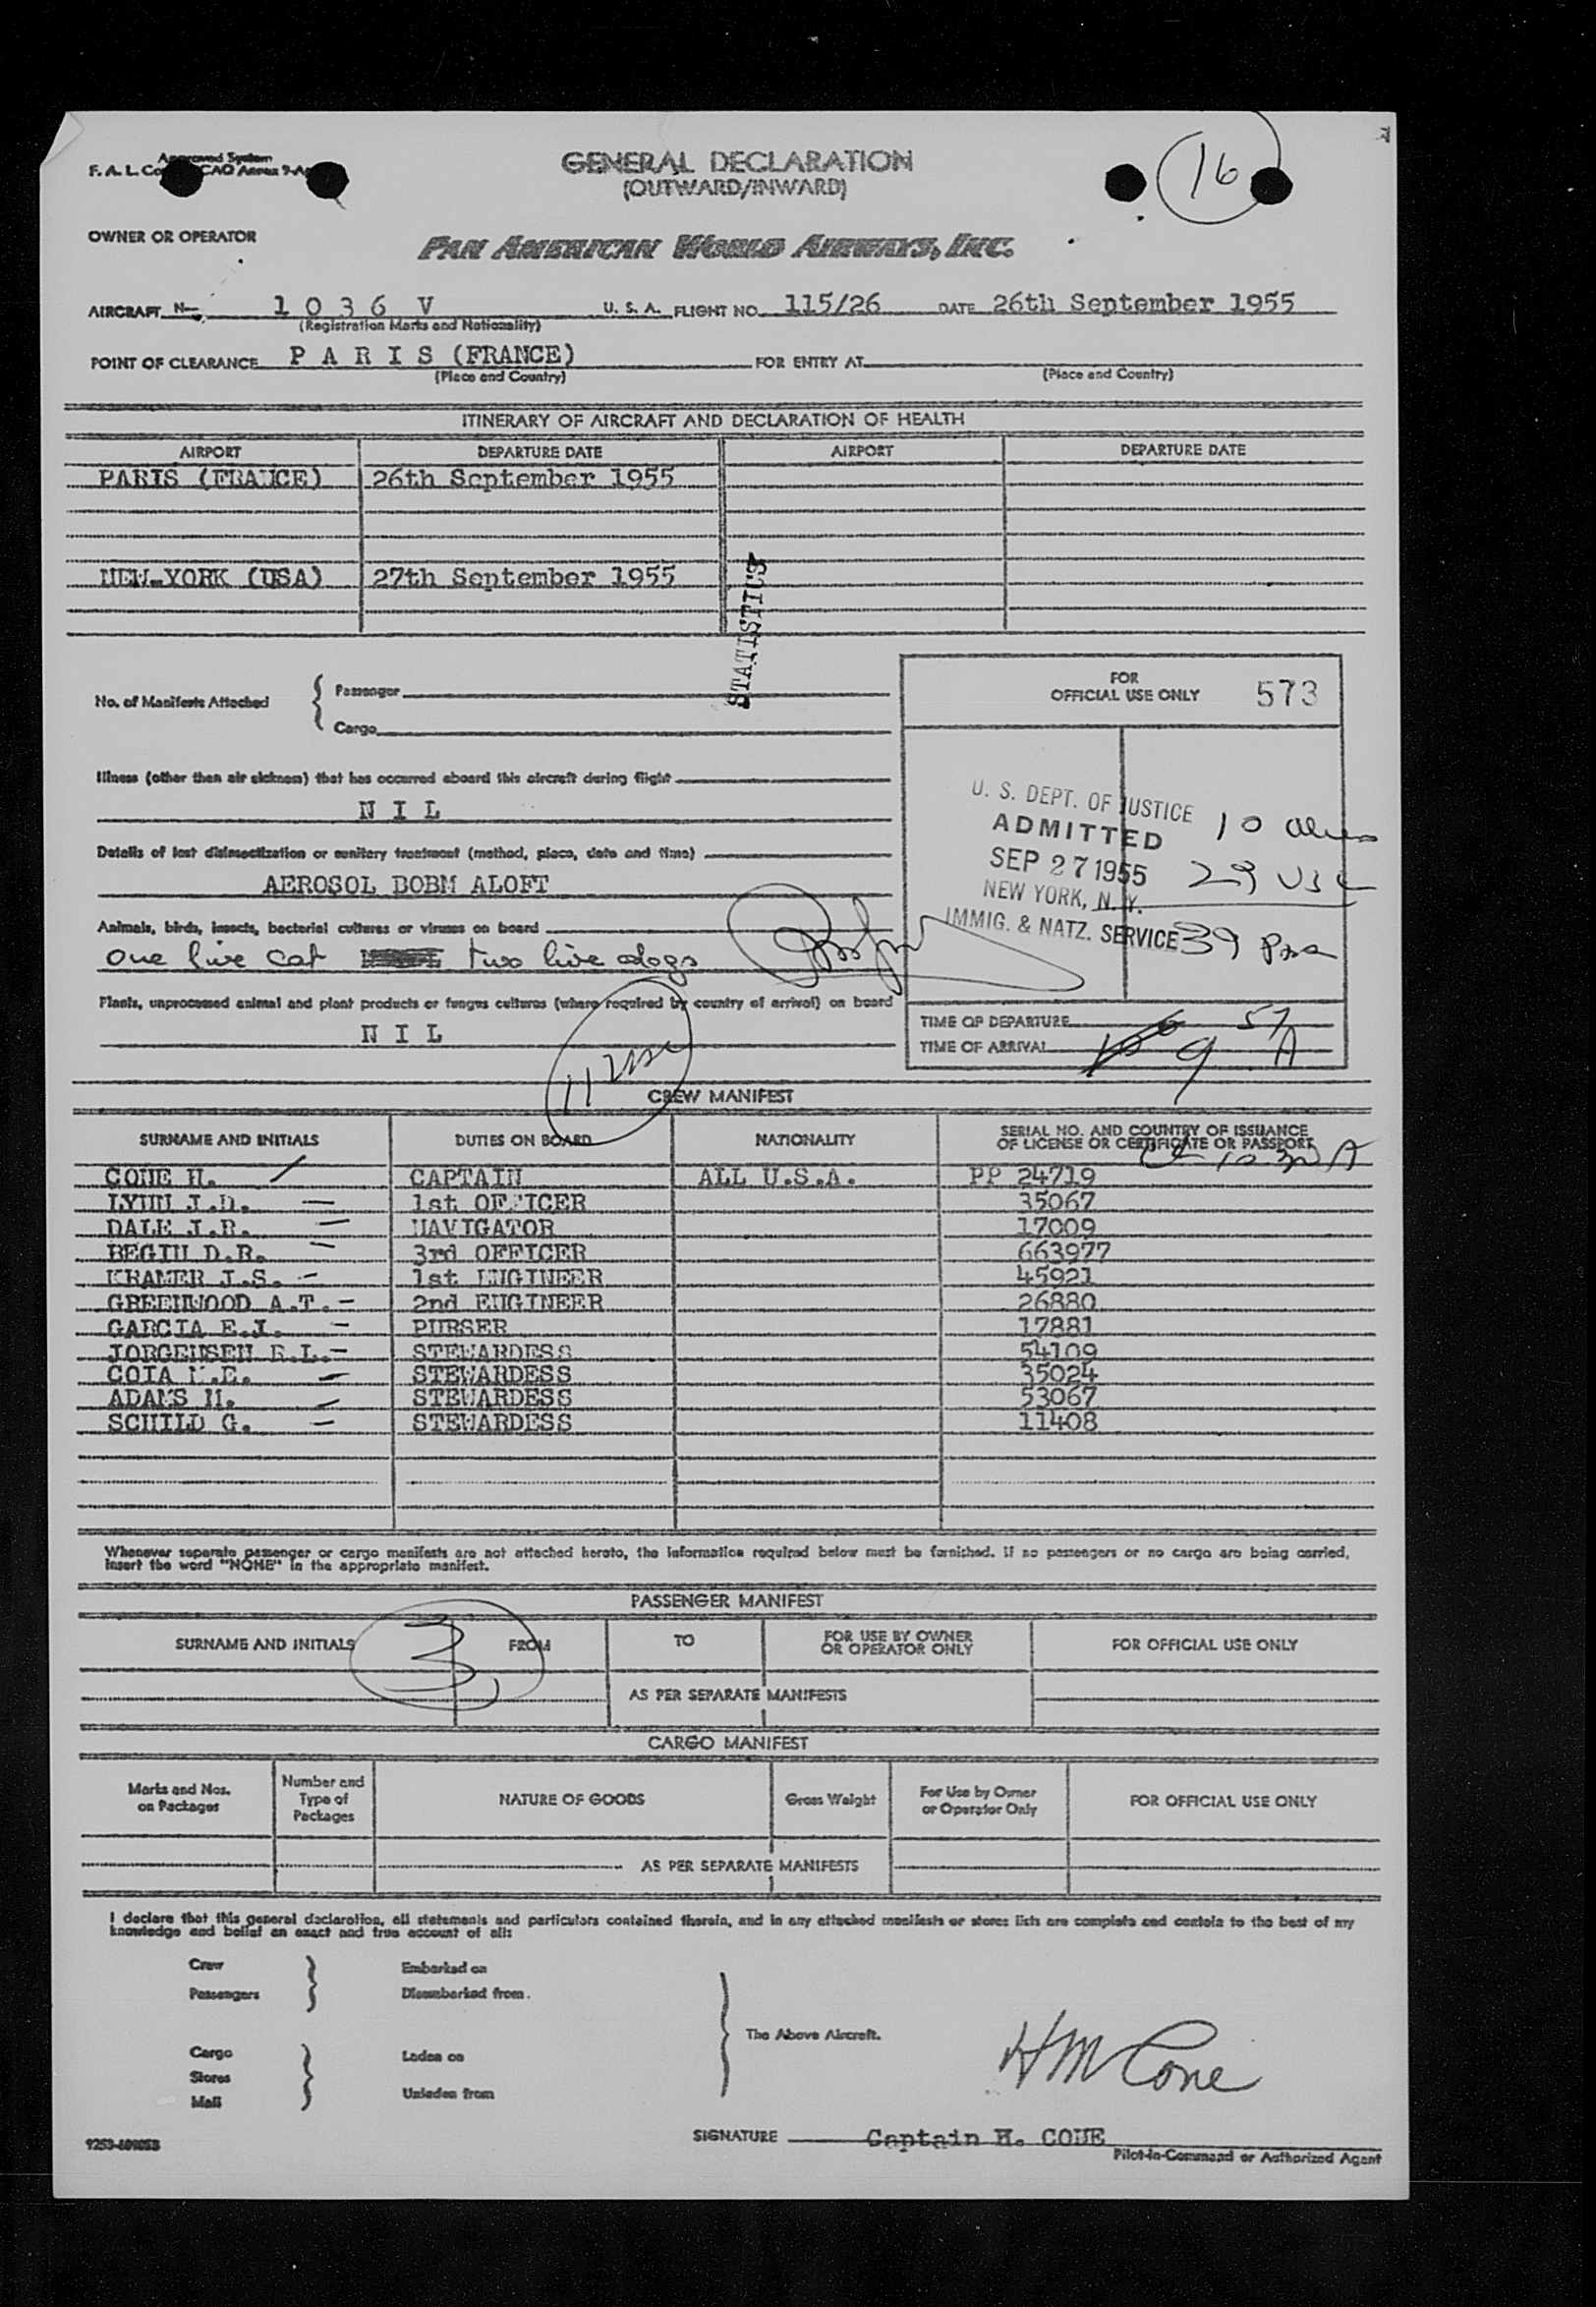 Approved System
GENERAL DECLARATION
(OUTWARD/INWARD)
16
OWNER OR OPERATOR
PAN AMERICAN WORLD AIRWAYS, INC.
AIRCRAFT N- 1 0 3 6 V U. S. A. FLIGHT NO. 115/26 DATE 26th September 1955
(Registration Marks and Nationality)
POINT OF CLEARANCE P A R I S (FRANCE) FOR ENTRY AT
(Place and Country) (Place and Country)
ITINERARY OF AIRCRAFT AND DECLARATION OF HEALTH
AIRPORT DEPARTURE DATE AIRPORT DEPARTURE DATE
PARIS (FRANCE) 26th September 1955
NEW-YORK (USA) 27th September 1955
STATISTICS
FOR
OFFICIAL USE ONLY 573
No. of Manifests Attached { Passenger
Cargo
Illness (other than air sickness) that has occurred aboard this aircraft during flight
N I L
U. S. DEPT. OF JUSTICE
ADMITTED
SEP 27 1955
NEW YORK, N. Y.
IMMIG. & NATZ. SERVICE
10 aliens
29 USC
39 Pax
Details of last disinsectization or sanitary treatment (method, place, date and time)
AEROSOL BOBM ALOFT
Animals, birds, insects, bacterial cultures or viruses on board
One live cat two live dogs
Plants, unprocessed animal and plant products or fungus cultures (where required by country of arrival) on board
N I L
TIME OF DEPARTURE
TIME OF ARRIVAL 9 57 A
11 usc
CREW MANIFEST
SURNAME AND INITIALS DUTIES ON BOARD NATIONALITY SERIAL NO. AND COUNTRY OF ISSUANCE
OF LICENSE OR CERTIFICATE OR PASSPORT
CONE H. CAPTAIN ALL U.S.A. PP 24719
LYNN J.D. 1st OFFICER 35067
DALE J.R. NAVIGATOR 17009
BEGIN D.R. 3rd OFFICER 663977
KRAMER J.S. 1st ENGINEER 45921
GREENWOOD A.T. 2nd ENGINEER 26880
GARCIA E.J. PURSER 17881
JORGENSEN R.L. STEWARDESS 54109
COTA STEWARDESS 35024
ADAMS STEWARDESS 53067
SCHILD G. STEWARDESS 11408
Whenever separate passenger or cargo manifests are not attached hereto, the information required below must be furnished. If no passengers or no cargo are being carried,
insert the word "NONE" in the appropriate manifest.
PASSENGER MANIFEST
SURNAME AND INITIALS FROM TO FOR USE BY OWNER
OR OPERATOR ONLY FOR OFFICIAL USE ONLY
3
AS PER SEPARATE MANIFESTS
CARGO MANIFEST
Marks and Nos.
on Packages Number and
Type of
Packages NATURE OF GOODS Gross Weight For Use by Owner
or Operator Only FOR OFFICIAL USE ONLY
AS PER SEPARATE MANIFESTS
I declare that this general declaration, all statements and particulars contained therein, and in any attached manifests or stores lists are complete and contain to the best of my
knowledge and belief an exact and true account of all:
Crew Embarked on
Passengers Disembarked from.
The Above Aircraft.
Cargo Laden on
Stores
Mail Unladen from
HM Cone
SIGNATURE Captain H. CONE
Pilot-in-Command or Authorized Agent